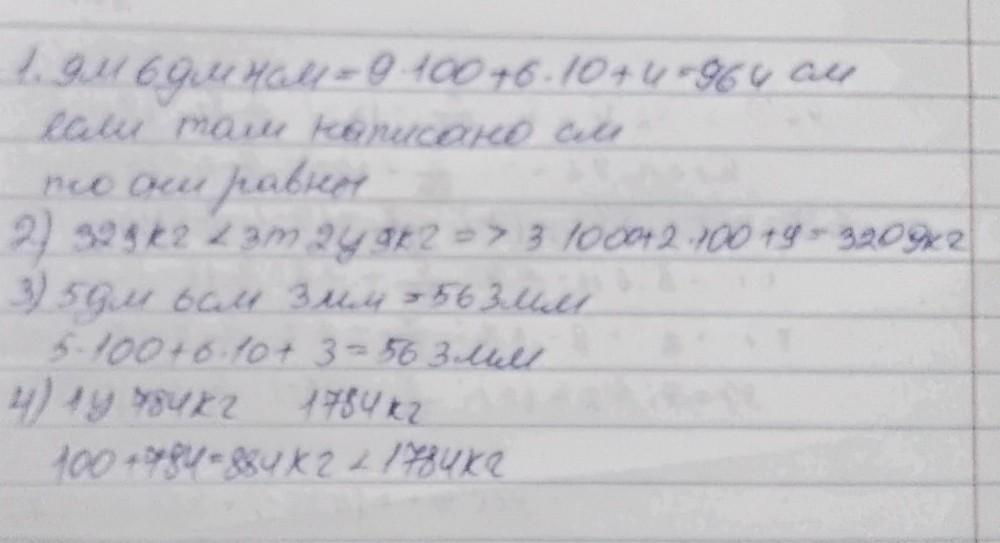 1. 9м 6дм 4см = 9·100+6·10+4=964 см
если там написано см
то они равны
2) 329кг < 3т 2ц 9кг => 3·1000+2·100+9=3209кг
3) 5дм 6см 3мм = 563мм
5·100+6·10+3=563мм
4) 1ц 784кг 1784кг
100+784=884кг < 1784кг